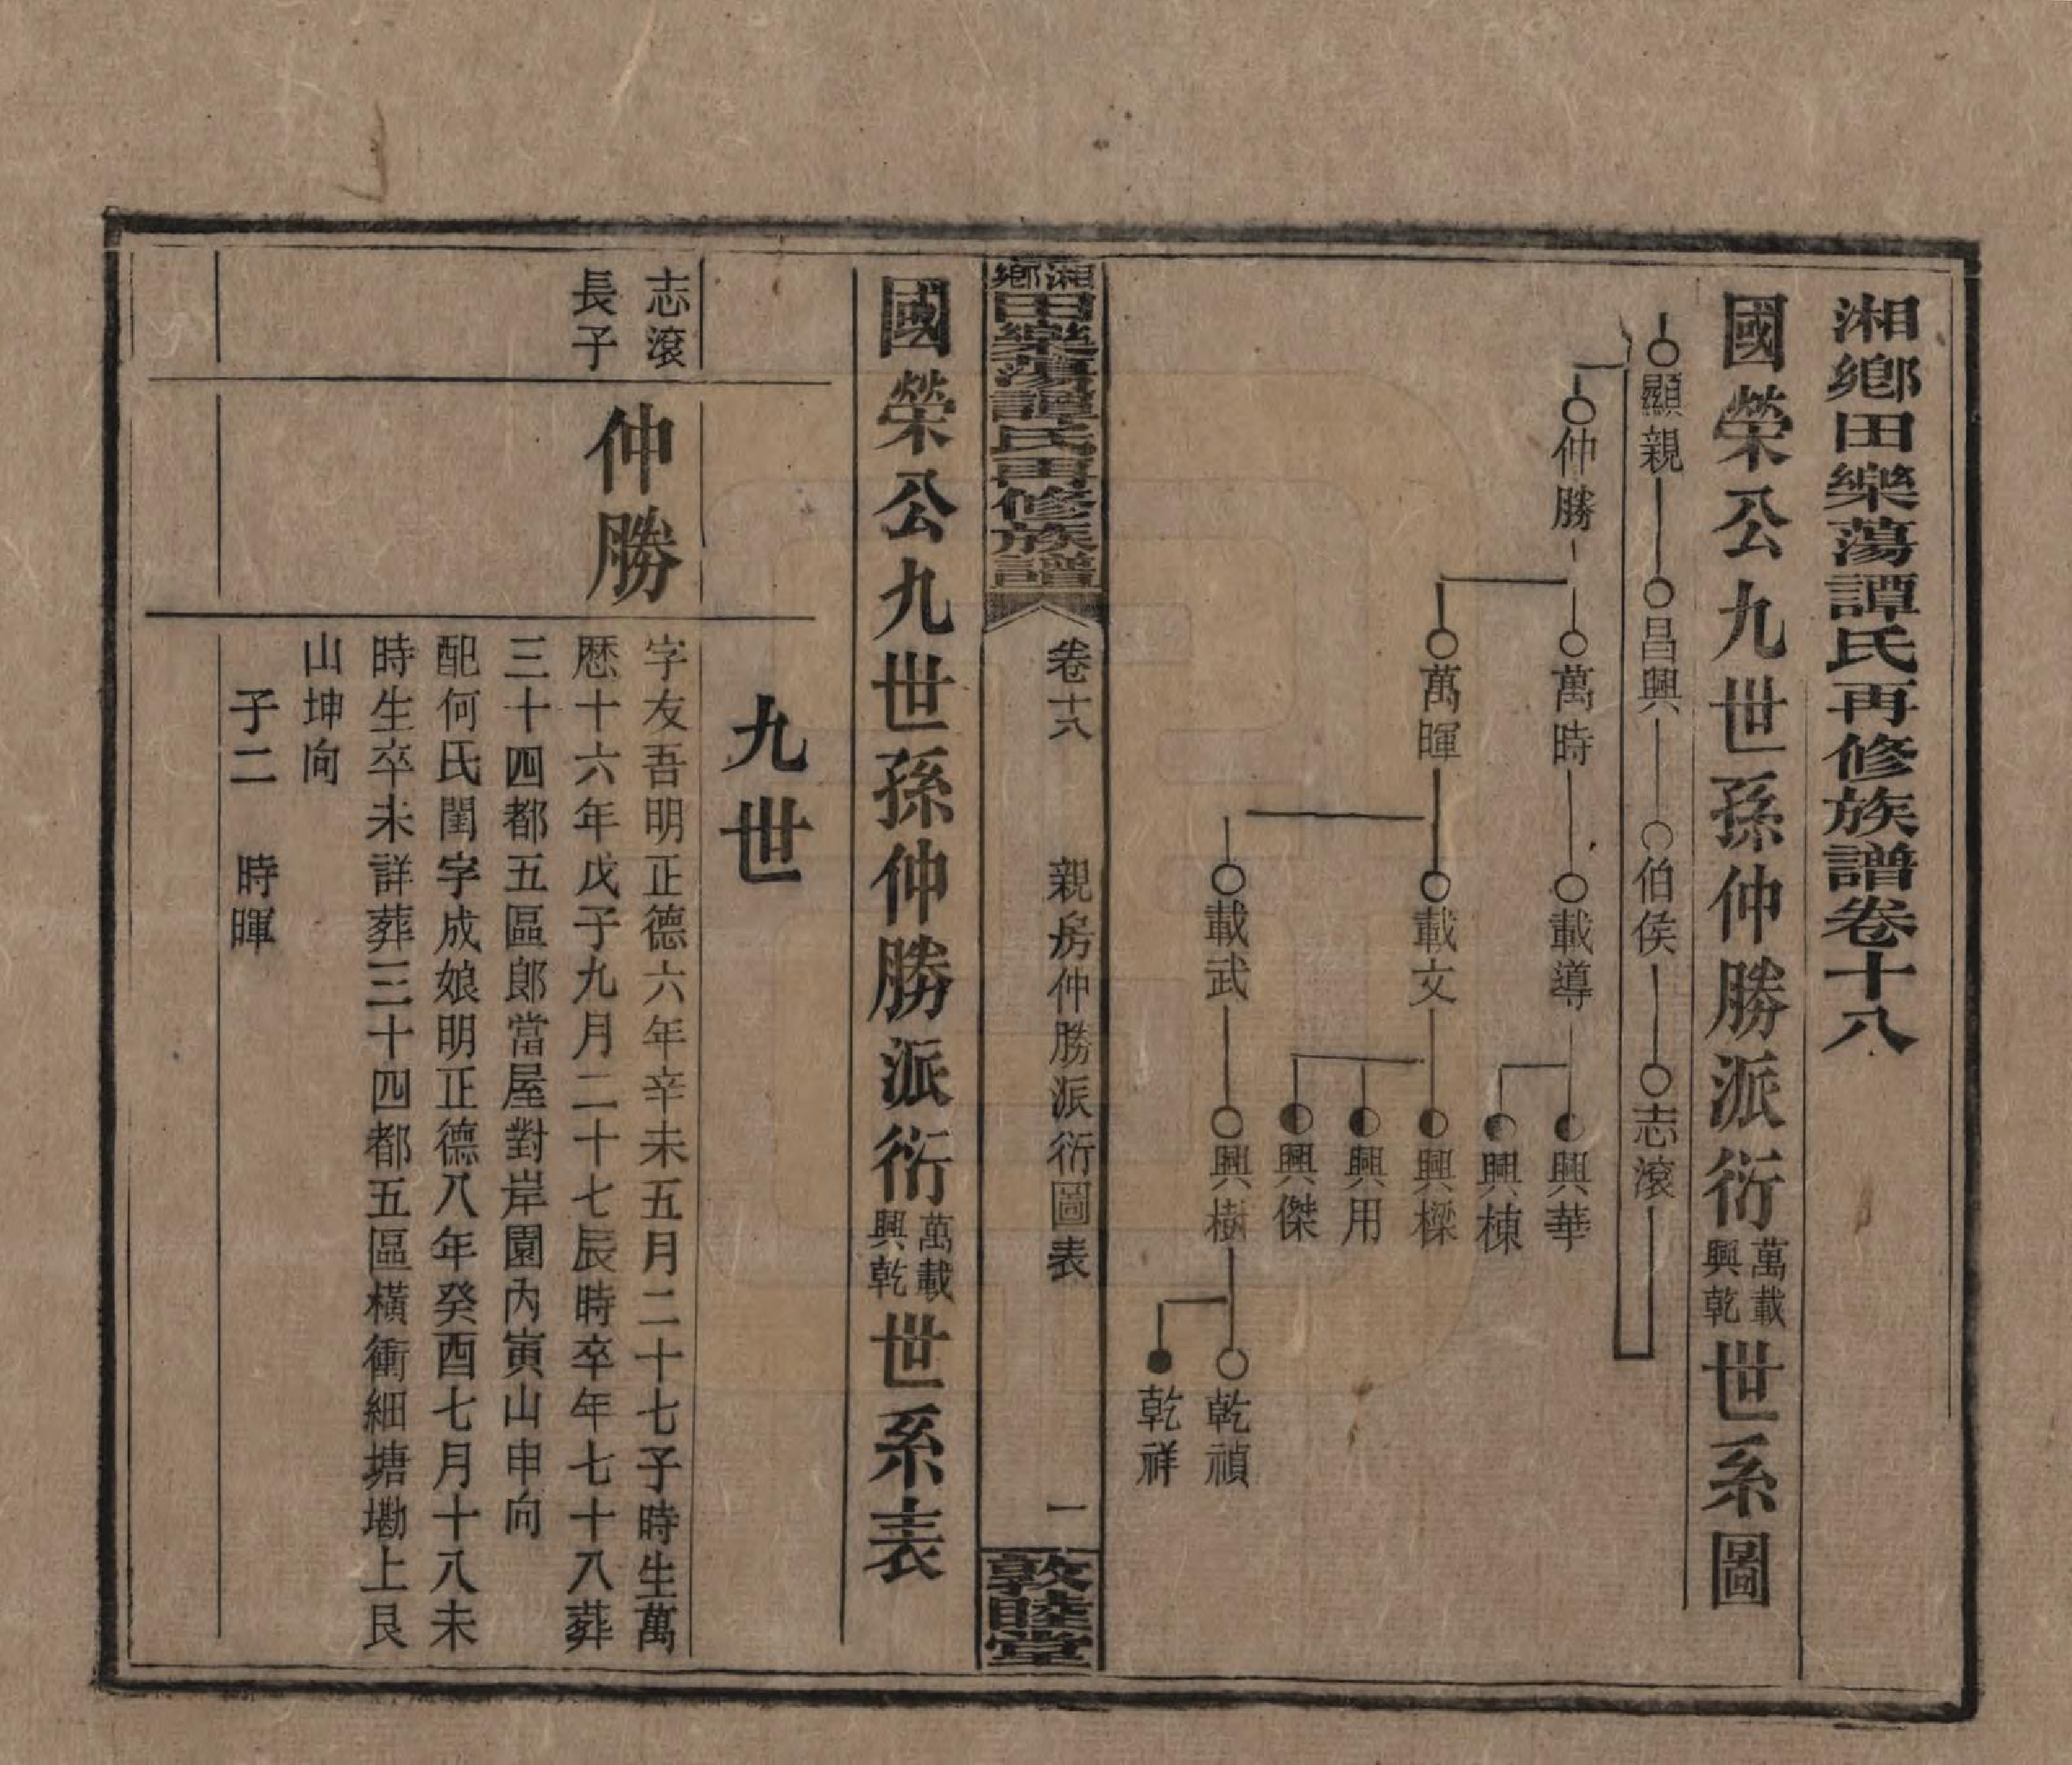 湘鄉田樂蕩譚氏再修族譜卷十八
國榮公九世孫仲勝派衍萬載興乾世系圖
顯親 昌興 伯侯 志滾
仲勝 萬時 載導 興華
興棟
萬暉 載文 興樑
興用
興傑
載武 興樹 乾禎
乾祥
湘鄉田樂蕩譚氏再修族譜 卷十八 親房仲勝派衍圖表 一 敦睦堂
國榮公九世孫仲勝派衍萬載興乾世系表
九世
志滾
長子
仲勝
字友吾明正德六年辛未五月二十七子時生萬
歷十六年戊子九月二十七辰時卒年七十八葬
三十四都五區郎當屋對岸園內寅山申向
配何氏閨字成娘明正德八年癸酉七月十八未
時生卒未詳葬三十四都五區橫衝細塘墈上艮
山坤向
子二 時暉